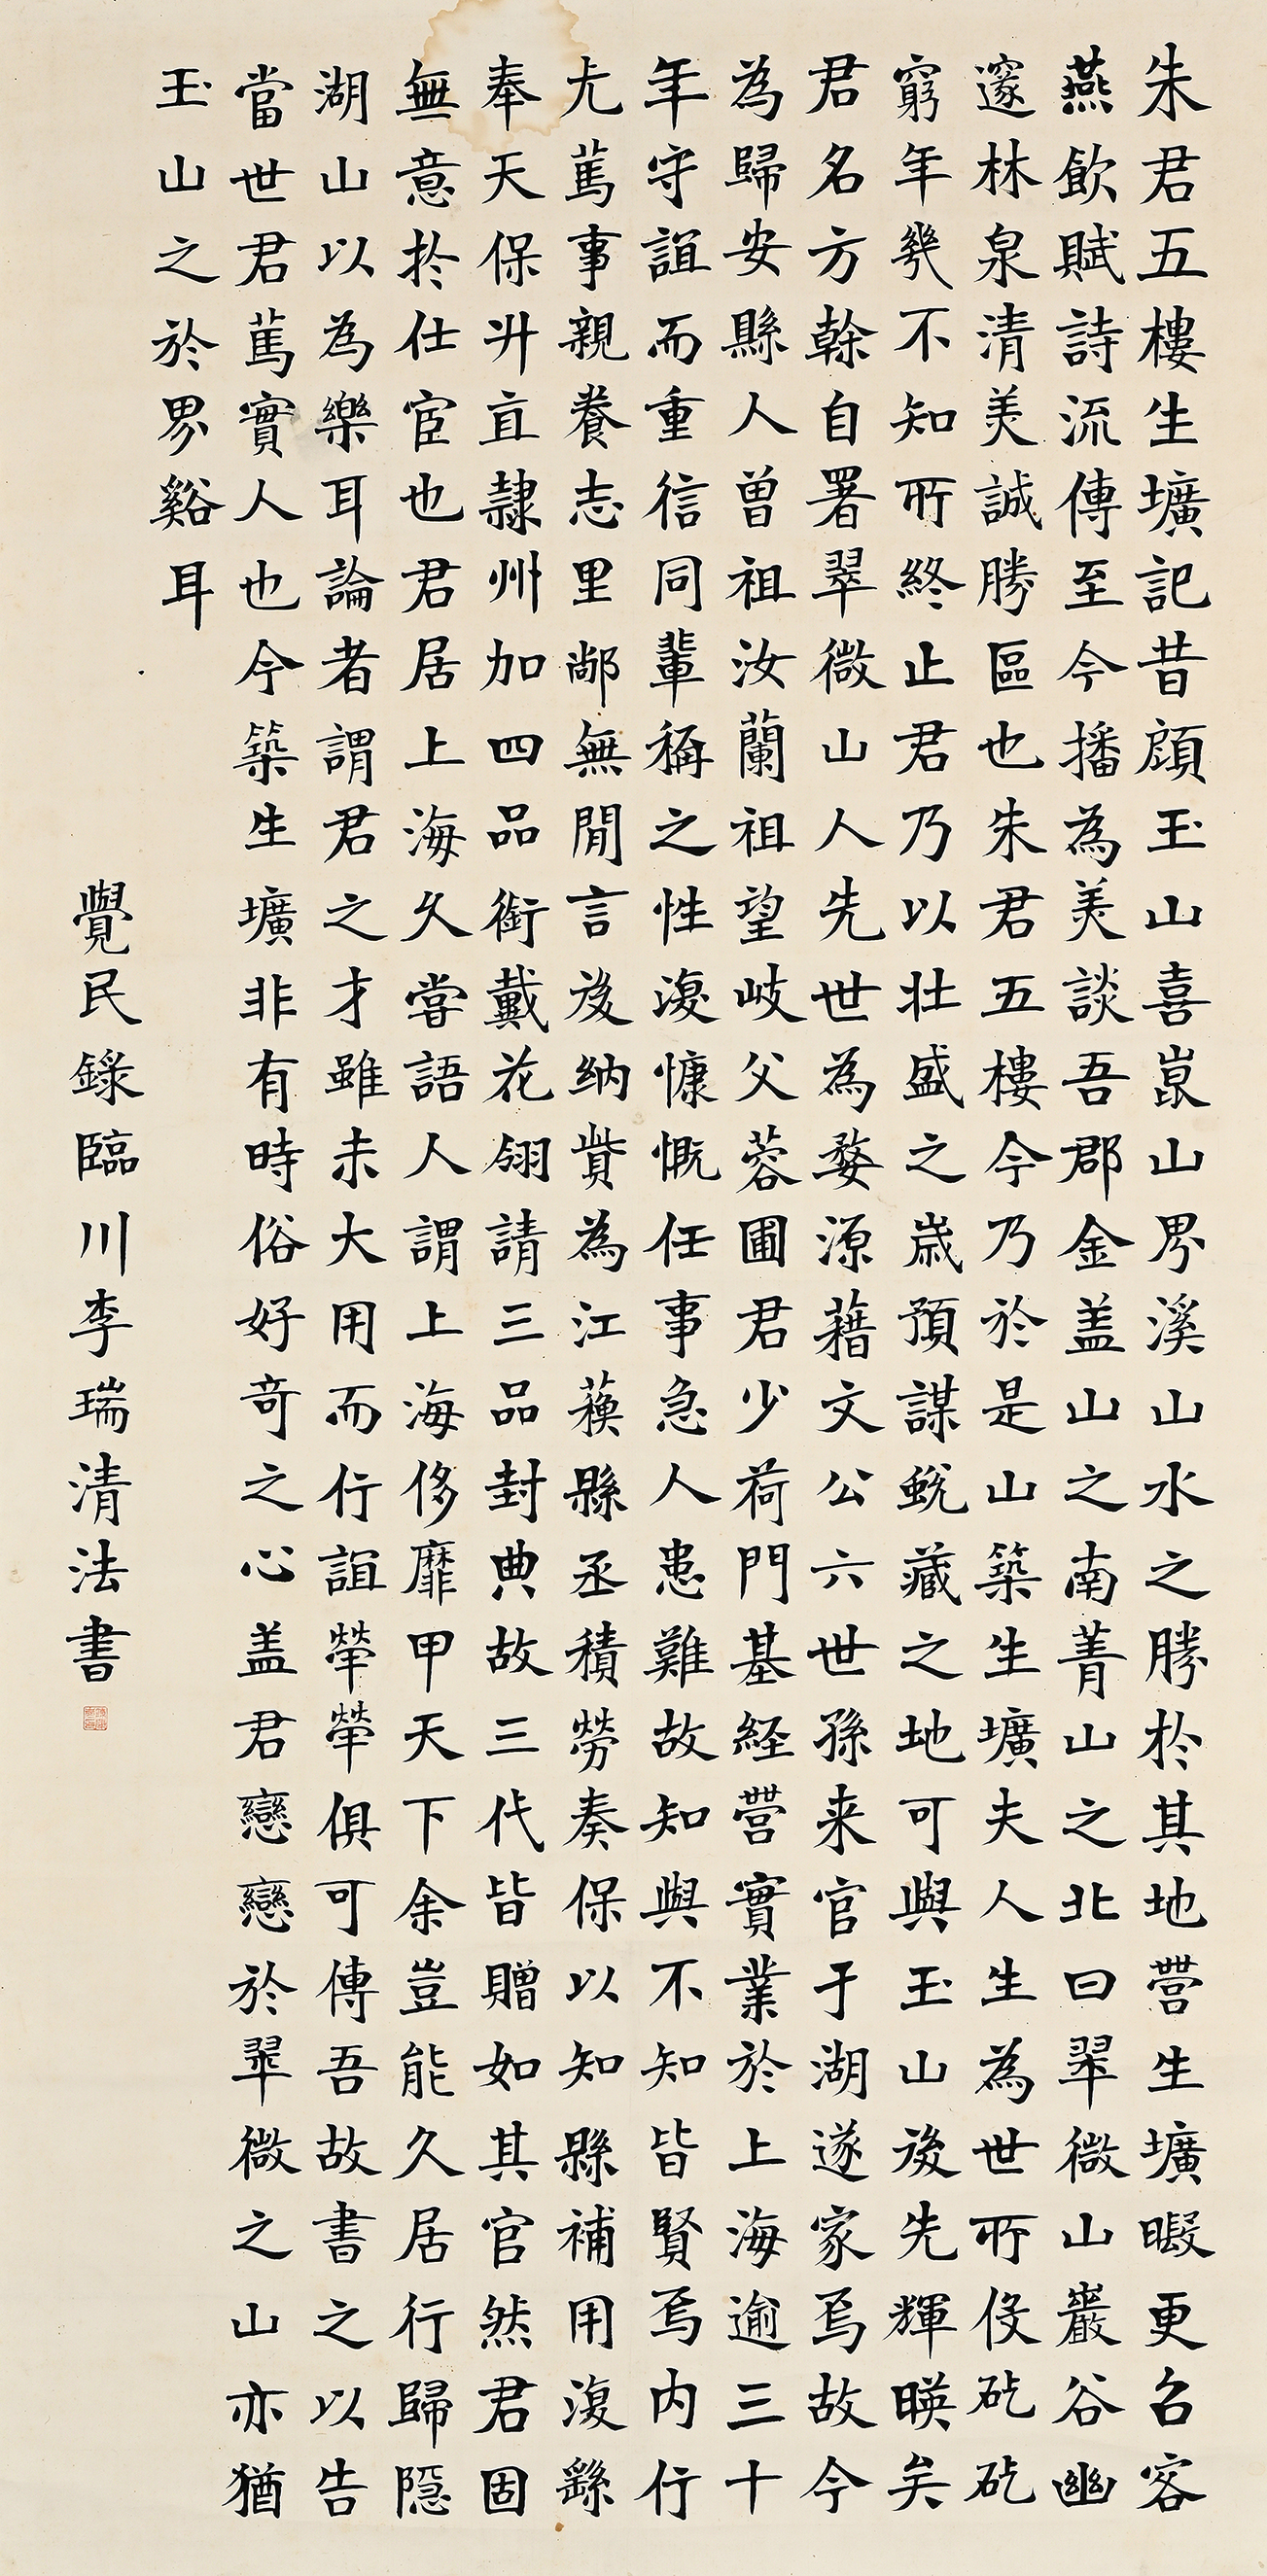 朱君五樓生壙記昔顧玉山喜崑山界溪山水之勝於其地營生壙暇更召客
燕飲賦詩流傳至今播為美談吾郡金盖山之南菁山之北曰翠微山巖谷幽
邃林泉清美誠勝區也朱君五樓今乃於是山築生壙夫人生為世所伇矻矻
窮年幾不知所終止君乃以壯盛之歲預謀蛻藏之地可與玉山後先輝暎矣
君名方榦自署翠微山人先世為婺源藉文公六世孫来官于湖遂家焉故今
為歸安縣人曾祖汝蘭祖望岐父蓉圃君少荷門基経營實業於上海逾三十
年守誼而重信同輩稱之性澓慷慨任事急人患難故知與不知皆賢焉内行
尤篤事親養志里鄰無閒言後納貲為江蘇縣丞積勞奏保以知縣補用澓繇
奉天保升直隸州加四品銜戴花翎請三品封典故三代皆贈如其官然君固
無意於仕宦也君居上海久嘗語人謂上海侈靡甲天下余豈能久居行歸隱
湖山以為樂耳論者謂君之才雖未大用而行誼犖犖俱可傳吾故書之以告
當世君篤實人也今築生壙非有時俗好奇之心盖君戀戀於翠微之山亦猶
玉山之於界谿耳
覺民錄臨川李瑞清法書